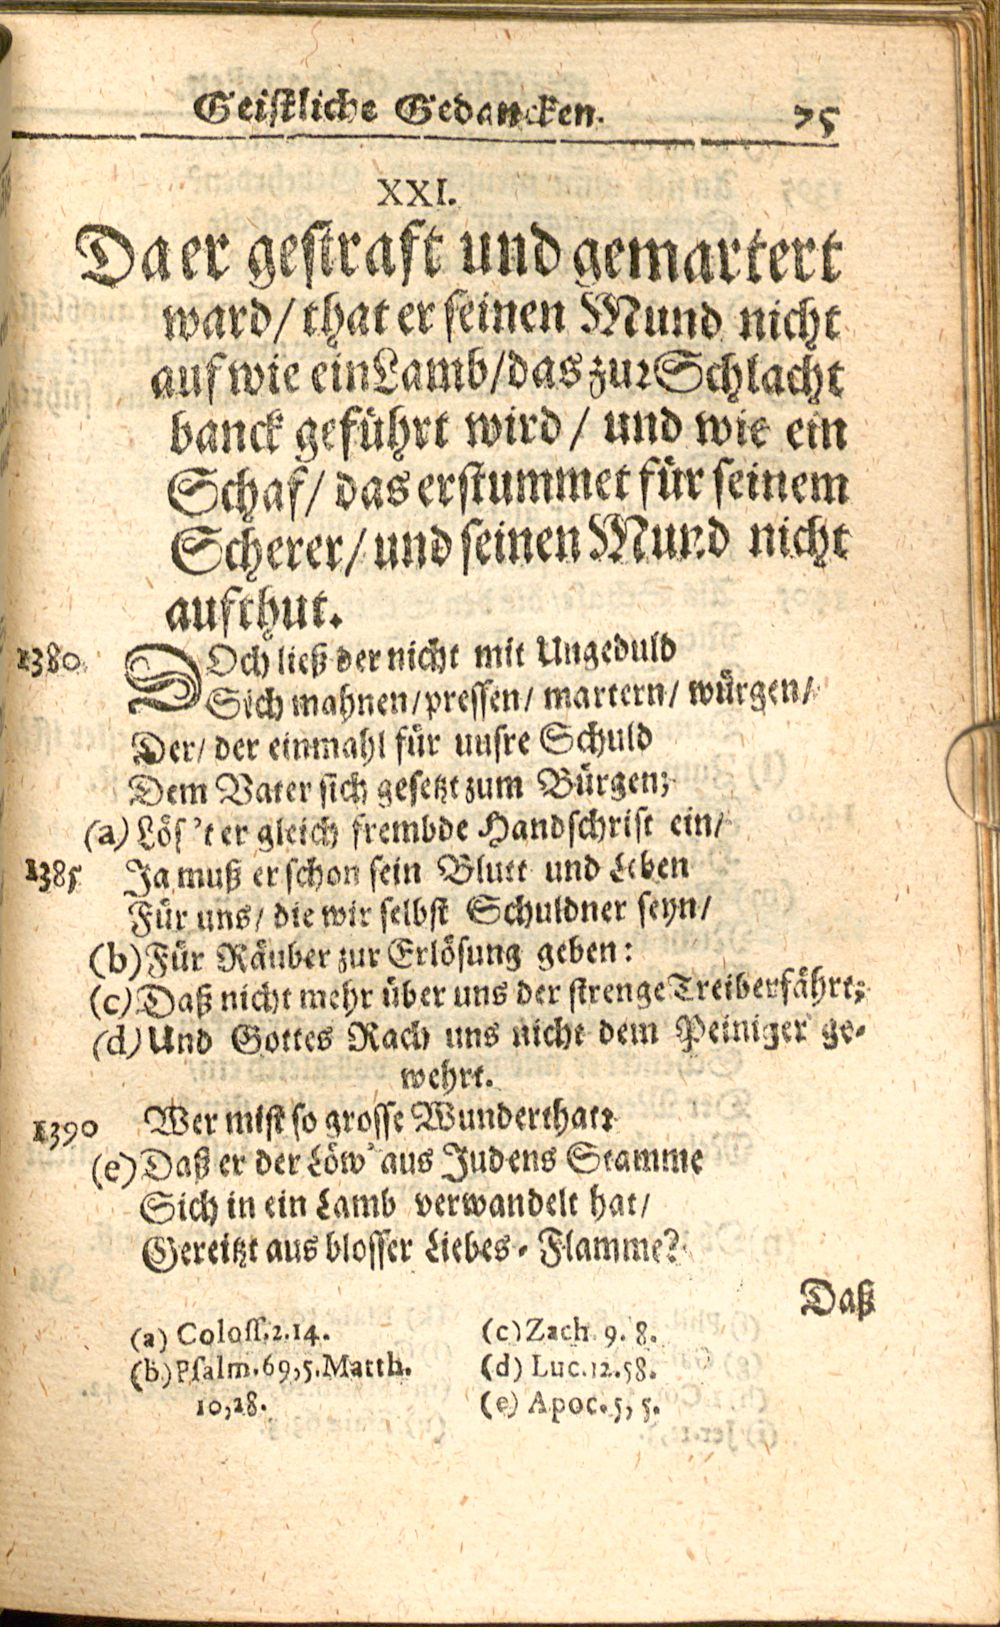 Geistliche Gedancken. 75
XXI.
Da er gestraft und gemartert
ward/ that er seinen Mund nicht
auf wie ein Lamb/das zur Schlacht
banck geführt wird / und wie ein
Schaf/ das erstummet für seinem
Scherer/ und seinen Mund nicht
aufthut.
1380 DOch ließ der nicht mit Ungeduld
Sich mahnen/pressen/ martern/ würgen/
Der/ der einmahl für unsre Schuld
Dem Vater sich gesetzt zum Bürgen;
(a) Lös't er gleich frembde Handschrift ein/
1385 Ja muß er schon sein Blutt und Leben
Für uns/ die wir selbst Schuldner seyn/
(b) Für Räuber zur Erlösung geben:
(c) Daß nicht mehr über uns der strenge Treiber fährt;
(d) Und Gottes Rach uns nicht dem Peiniger ge-
wehrt.
1390 Wer mist so grosse Wunderthat?
(e) Daß er der Löw' aus Judens Stamme
Sich in ein Lamb verwandelt hat/
Gereitzt aus blosser Liebes-Flamme?
Daß
(a) Coloss.2.14.
(b) Psalm.69,5.Matth.
10,28.
(c) Zach. 9. 8.
(d) Luc.12.58.
(e) Apoc.5, 5.